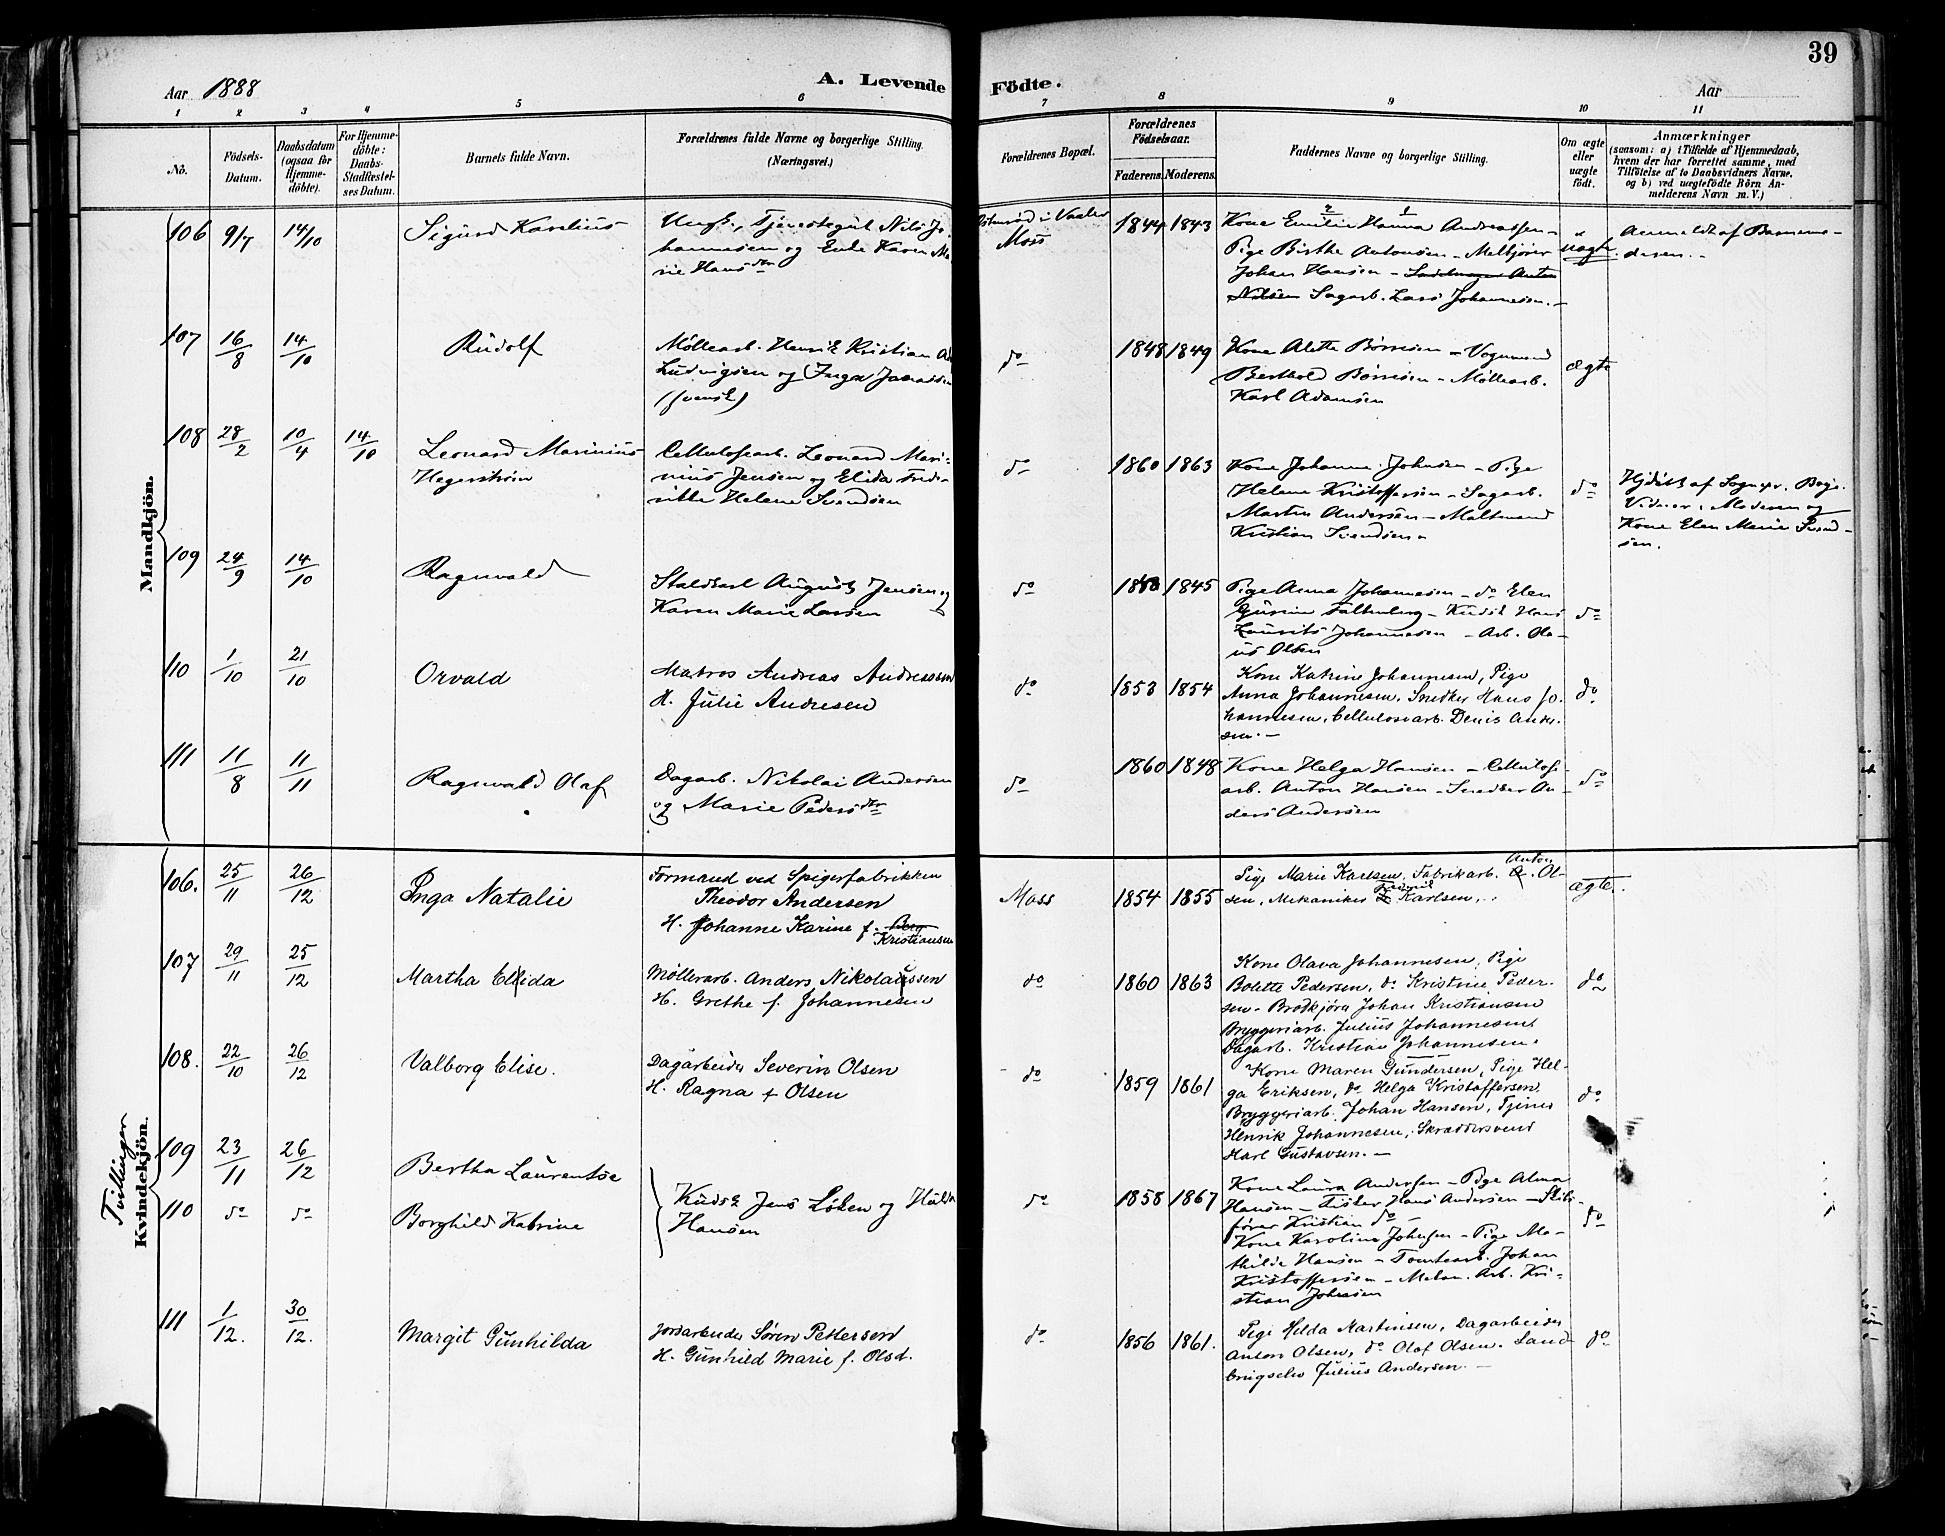 39
Aar 1888
A. Levende Födte.
Aar
1 2 3 4 5 6 7 8 9 10 11
No.
Födsels-Datum.
Daabsdatum (ogsaa for Hjemme-döbte).
For Hjemme-döbte: Daabs-Stadfæstel-ses Datum.
Barnets fulde Navn.
Forældrenes fulde Navne og borgerlige Stilling.
(Næringsvei.)
Forældrenes Bopæl.
Forældrenes Födselsaar.
Faderens. Moderens.
Faddernes Navne og borgerlige Stilling.
Om ægte eller uægte födt.
Anmærkninger
(saasom: a) i Tilfælde af Hjemmedaab,
hvem der har forrettet samme, med
Tilföielse af to Daabsvidners Navne,
og b) ved uægtefödte Börn An-
melderens Navn m. V.)
Mandkjön.
106 9/7 14/10 Sigurd Karelius
Ungk., Tjenestegut Nils Jo-
hannesen og Enke Karen Ma-
rie Hansdtr
i Vaaler
Moss
1844 1843
Kone Emilie Hanna Andreassen -
Pige Birthe Antonsen - Melkjører
Johan Hansen - Anton
Nilsen Sagarb. Lars Johannesen. -
uægte.
Anmeldt af Barnemo-
deren. -
107 16/8 14/10 Rudolf
Møllearb. Henrik Kristian
Ludvigsen og Inga
(svensk)
do
1848 1849
Kone Alette Børresen - Vognmand
Berthold Børresen - Møllearb.
Karl Adamsen
ægte
108 28/2 10/4 14/10 Leonard Marinius
Hegerstrøm
Cellulosearb. Leonard Mari-
nius Jensen og Elida Frede-
rikke Helene Svendsen
do
1860 1863
Kone Johanne Johnsen - Pige
Helene Kristoffersen - Sagarb.
Martin Andersen - Maltmand
Kristian Svendsen.
do
Hjdøbt af Sognepr. Boye.
Vidner: Moderen og
Kone Elen Marie Svend-
sen.
109 24/9 14/10 Ragnvald
Staldkarl August Jensen og
Karen Marie Larsen
do
1845
Pige Anna Johannesen - do Elen
Falkenberg - Kudsk Hans
Laurits Johannesen - Arb. Ola-
us Olsen
do
110 1/10 21/10 Orvald
Matros Andreas Andreassen
H. Julie Andresen
do
1853 1854
Kone Katrine Johannesen, Pige
Anna Johannesen. Snedker Hans Jo-
hannesen, Cellulosearb. Denis Ander-
sen. -
do
111 11/8 11/11 Ragnvald Olaf
Dagarb. Nikolai Andersen
og Marie Pedersdtr
do
1860 1848
Kone Helga Hansen - Cellulose-
arb. Anton Hansen - Snedker An-
ders Andersen
do
Kvindekjön.
106. 25/11 26/12 Inga Natalie
Formand ved Spigerfabrikken
Theodor Andersen
H. Johanne Karine f. Berg
Kristiansen
Moss
1854 1855
Pige Marie Karlsen, Fabrikarb. Anton Ol-
sen, Mekaniker Karlsen,
ægte.
107 29/11 25/12 Martha Elida
Møllerarb. Anders Nikolaissen
H. Grethe f. Johannesen
do
1860 1863
Kone Olava Johannesen, Pige
Bolette Pedersen, do Kristine Peder-
sen - Brødkjører Johan Kristiansen
Bryggeriarb. Julius Johannesen.
Dagarb. Kristian Johannesen.
do
108. 22/10 26/12 Valborg Elise.
Dagarbeider Severin Olsen
H. Ragna f Olsen
do
1859 1861
Kone Maren Gundersen, Pige Hel-
ga Eriksen, do Helga Kristoffersen
Bryggeriarb. Johan Hansen, Tjener
Henrik Johannesen, Skræddersvend
Karl Gustavsen. -
do
Tvillinger
109 23/11 26/12 Bertha Laurentse
110 do do Borghild Katrine
Kudsk Jens Løken og Hulda
Hansen
do
1858 1867
Kone Laura Andersen - Pige Alma
Hansen - Fisker Hans Andersen - Skibs-
fører Kristian do -
Kone Karoline Johnsen - Pige Ma-
thilde Hansen - Tomtearb. Johan
Kristoffersen - Arb. Kri-
stian Johnsen
do
111 1/12. 30/12. Margit Gunhilda
Jordarbeider Søren Pettersen
H. Gunhild Marie f. Olsd.
do
1856 1861.
Pige Helda Martinsen, Dagarbeider
Anton Olsen, do Olaf Olsen. Land-
brugselev Julius Andersen. -
do